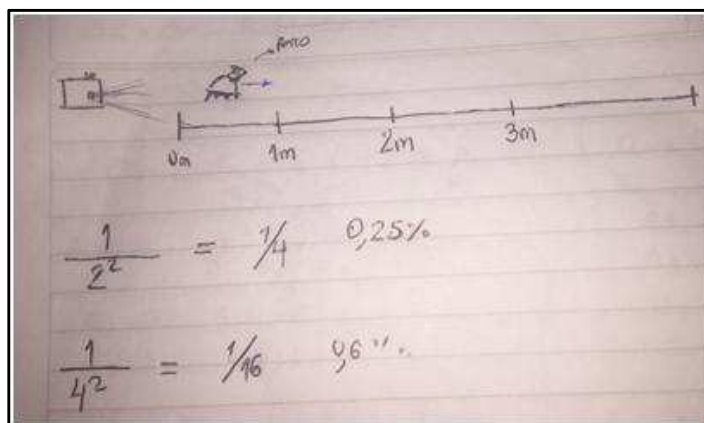 0m 1m 2m 3m
1/2² = 1/4 0,25%
1/4² = 1/16 0,6%